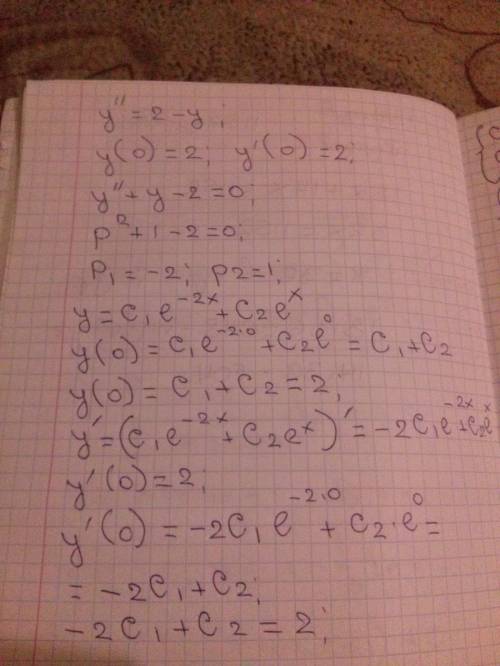 y'' = 2 - y ;
y(0) = 2; y'(0) = 2;
y'' + y - 2 = 0;
p² + 1 - 2 = 0;
P₁ = -2; p2 = 1;
y = C₁e⁻²ˣ + C₂eˣ
y(0) = C₁e⁻²·⁰ + C₂e⁰ = C₁ + C₂
y(0) = C₁ + C₂ = 2;
y' = (C₁e⁻²ˣ + C₂eˣ)' = -2C₁e⁻²ˣ + C₂eˣ
y'(0) = 2;
y'(0) = -2C₁e⁻²·⁰ + C₂·e⁰ =
= -2C₁ + C₂;
-2C₁ + C₂ = 2;